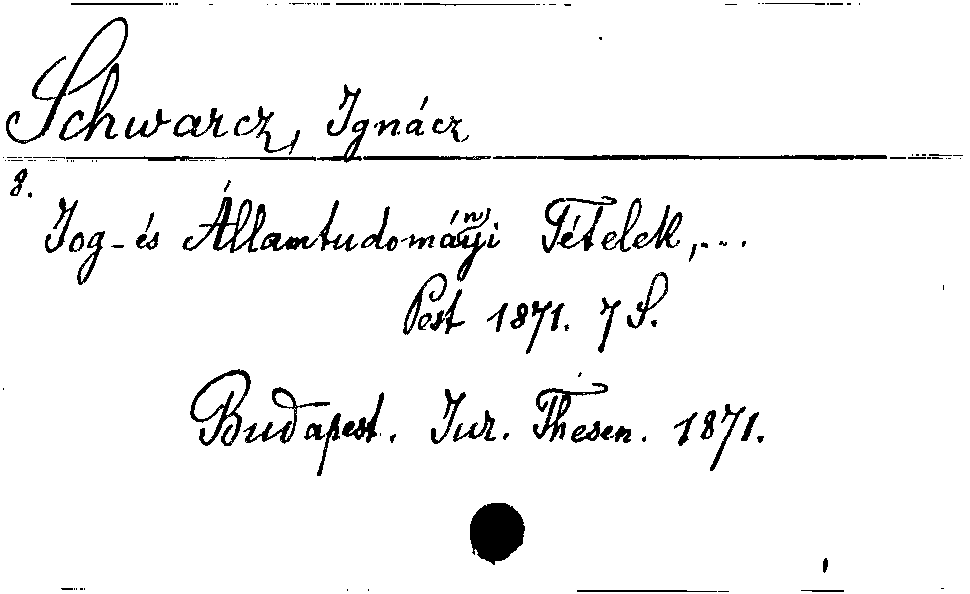 Schwarcz, Ignácz
8.
Jog- és Államtudományi Tételek,...
Pest 1871. 7 S.
Budapest. Jur. Thesen. 1871.